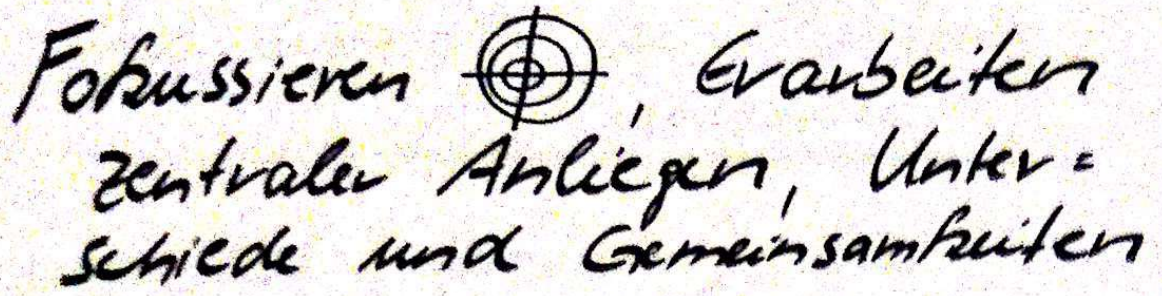 Fokussieren, Erarbeiten
zentraler Anliegen, Unter=
schiede und Gemeinsamkeiten